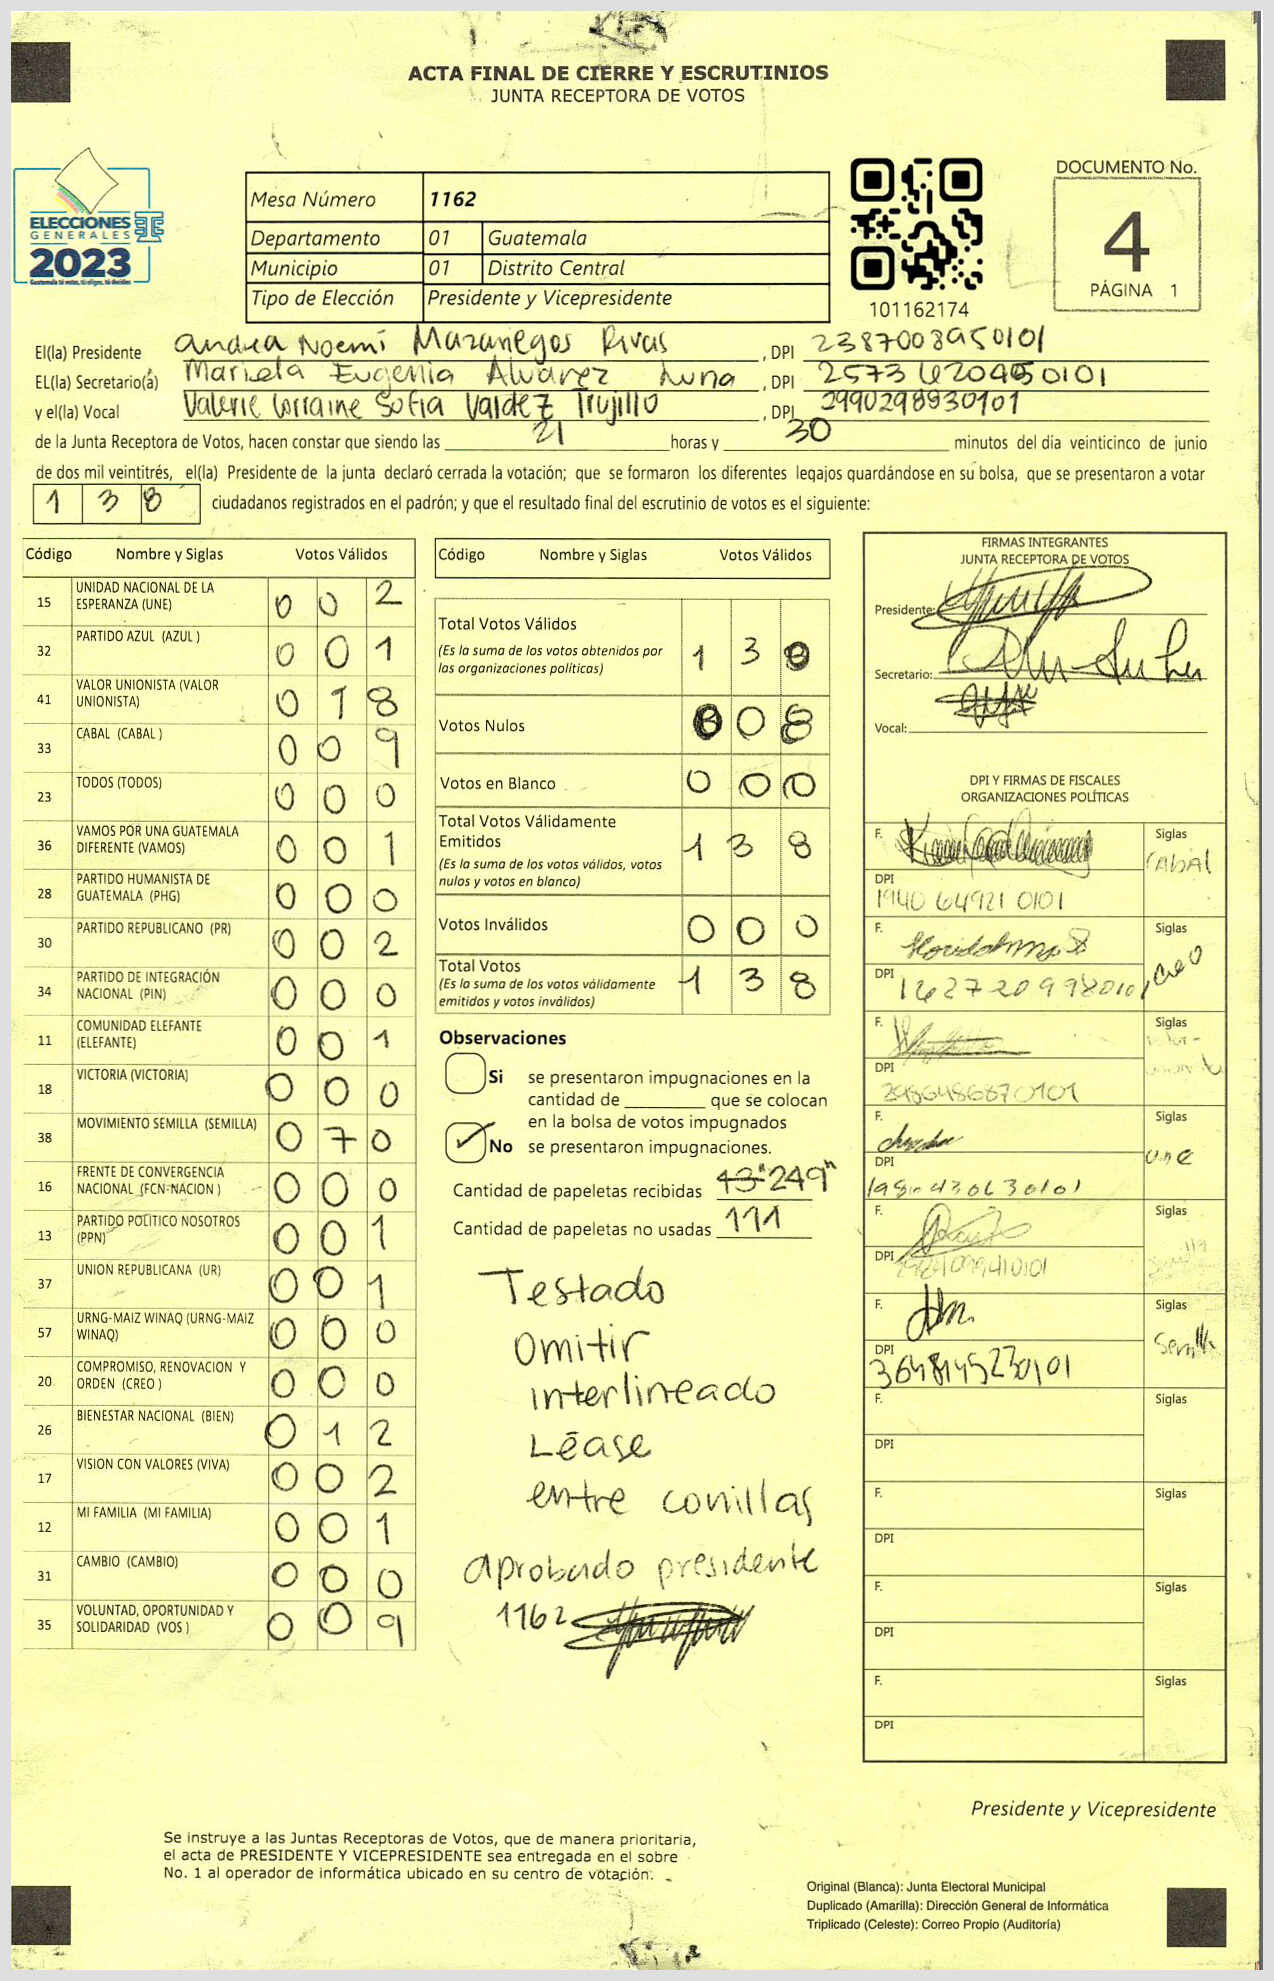 ACTA FINAL DE CIERRE Y ESCRUTINIOS
JUNTA RECEPTORA DE VOTOS
ELECCIONES
GENERALES
2023
Guatemala tú votas, tú eliges, tú decides
Mesa Número 1162
Departamento 01 Guatemala
Municipio 01 Distrito Central
Tipo de Elección Presidente y Vicepresidente
101162174
DOCUMENTO No.
4
PÁGINA 1
El(la) Presidente Andrea Noemí Mazariegos Rivas, DPI 2387008950101
EL(la) Secretario(a) Mariela Eugenia Alvarez Luna, DPI
y el(la) Vocal Valerie Lorraine Sofia Valdez Trujillo, DPI 2990298930101
de la Junta Receptora de Votos, hacen constar que siendo las 21 horas y 30 minutos del día veinticinco de junio
de dos mil veintitrés, el(la) Presidente de la junta declaró cerrada la votación; que se formaron los diferentes legajos guardándose en su bolsa, que se presentaron a votar
1 3 8 ciudadanos registrados en el padrón; y que el resultado final del escrutinio de votos es el siguiente:
Código Nombre y Siglas Votos Válidos
15 UNIDAD NACIONAL DE LA ESPERANZA (UNE) 0 0 2
32 PARTIDO AZUL (AZUL ) 0 0 1
41 VALOR UNIONISTA (VALOR UNIONISTA) 0 1 8
33 CABAL (CABAL ) 0 0 9
23 TODOS (TODOS) 0 0 0
36 VAMOS POR UNA GUATEMALA DIFERENTE (VAMOS) 0 0 1
28 PARTIDO HUMANISTA DE GUATEMALA (PHG) 0 0 0
30 PARTIDO REPUBLICANO (PR) 0 0 2
34 PARTIDO DE INTEGRACIÓN NACIONAL (PIN) 0 0 0
11 COMUNIDAD ELEFANTE (ELEFANTE) 0 0 1
18 VICTORIA (VICTORIA) 0 0 0
38 MOVIMIENTO SEMILLA (SEMILLA) 0 7 0
16 FRENTE DE CONVERGENCIA NACIONAL (FCN-NACION ) 0 0 0
13 PARTIDO POLITICO NOSOTROS (PPN) 0 0 1
37 UNION REPUBLICANA (UR) 0 0 1
57 URNG-MAIZ WINAQ (URNG-MAIZ WINAQ) 0 0 0
20 COMPROMISO, RENOVACION Y ORDEN (CREO ) 0 0 0
26 BIENESTAR NACIONAL (BIEN) 0 1 2
17 VISION CON VALORES (VIVA) 0 0 2
12 MI FAMILIA (MI FAMILIA) 0 0 1
31 CAMBIO (CAMBIO) 0 0 0
35 VOLUNTAD, OPORTUNIDAD Y SOLIDARIDAD (VOS ) 0 0 9
Código Nombre y Siglas Votos Válidos
Total Votos Válidos 1 3
(Es la suma de los votos obtenidos por las organizaciones políticas)
Votos Nulos 0 0 8
Votos en Blanco 0 0 0
Total Votos Válidamente Emitidos 1 3 8
(Es la suma de los votos válidos, votos nulos y votos en blanco)
Votos Inválidos 0 0 0
Total Votos 1 3 8
(Es la suma de los votos válidamente emitidos y votos inválidos)
Observaciones
Si se presentaron impugnaciones en la
cantidad de ________ que se colocan
en la bolsa de votos impugnados
No se presentaron impugnaciones.
Cantidad de papeletas recibidas 43 "249"
Cantidad de papeletas no usadas 111
Testado
Omitir
interlineado
Léase
entre comillas
aprobado presidente
1162
FIRMAS INTEGRANTES
JUNTA RECEPTORA DE VOTOS
Presidente:
Secretario:
Vocal:
DPI Y FIRMAS DE FISCALES
ORGANIZACIONES POLÍTICAS
F. Siglas CABAL
DPI 1940 64921 0101
F. Siglas creo
DPI 1627209980101
F. Siglas
DPI 2986486870101
F. Siglas une
DPI
F. Siglas
DPI
F. Siglas Semilla
DPI 3648145230101
F. Siglas
DPI
F. Siglas
DPI
F. Siglas
DPI
F. Siglas
DPI
Presidente y Vicepresidente
Se instruye a las Juntas Receptoras de Votos, que de manera prioritaria,
el acta de PRESIDENTE Y VICEPRESIDENTE sea entregada en el sobre
No. 1 al operador de informática ubicado en su centro de votación.
Original (Blanca): Junta Electoral Municipal
Duplicado (Amarilla): Dirección General de Informática
Triplicado (Celeste): Correo Propio (Auditoría)